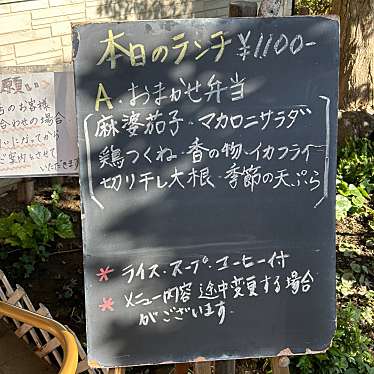 本日のランチ ¥1,100-
A.おまかせ弁当
麻婆茄子・マカロニサラダ
鶏つくね・香の物・イカフライ
切り干し大根・季節の天ぷら
* ライス・スープ・コーヒー付
* メニュー内容途中変更する場合
がございます
願い
のお客様
合わせの場合
ってから
ご案内させて
いただきます